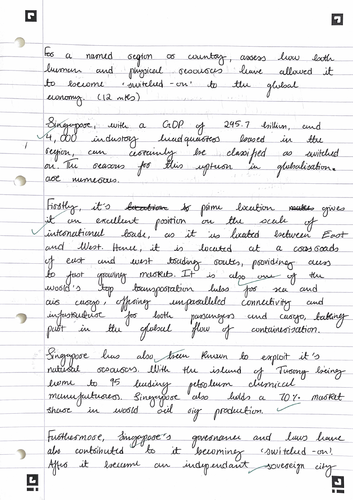 For a named region or country, assess how both
human and physical resources have allowed it
to become 'switched-on' to the global
economy. (12 mks)
Singapore, with a GDP of 295.7 billion, and
4,000 industry headquarters based in the
region, can certainly be classified as switched
on. The reasons for this upturn in globalisation
are numerous.
Firstly, it's prime location gives
it excellent position on the scale of
international trade, as it is located between East
and West. Hence, it is located at a crossroads
of east and west trading routes, providing access
to fast growing markets. It is also one of the
world's top transportation hubs for sea and
air cargo, offering unparalleled connectivity and
infrastructure for both passengers and cargo, taking
part in the global flow of containerisation.
Singapore has also been known to exploit it's
natural resources. With the island of Jurong being
home to 95 leading petroleum chemical
manufacturers. Singapore also holds a 70% market
share in world oil rig production.
Furthermore, Singapore's governance and laws have
also contributed to it becoming 'switched-on'.
After it became an independant sovereign city